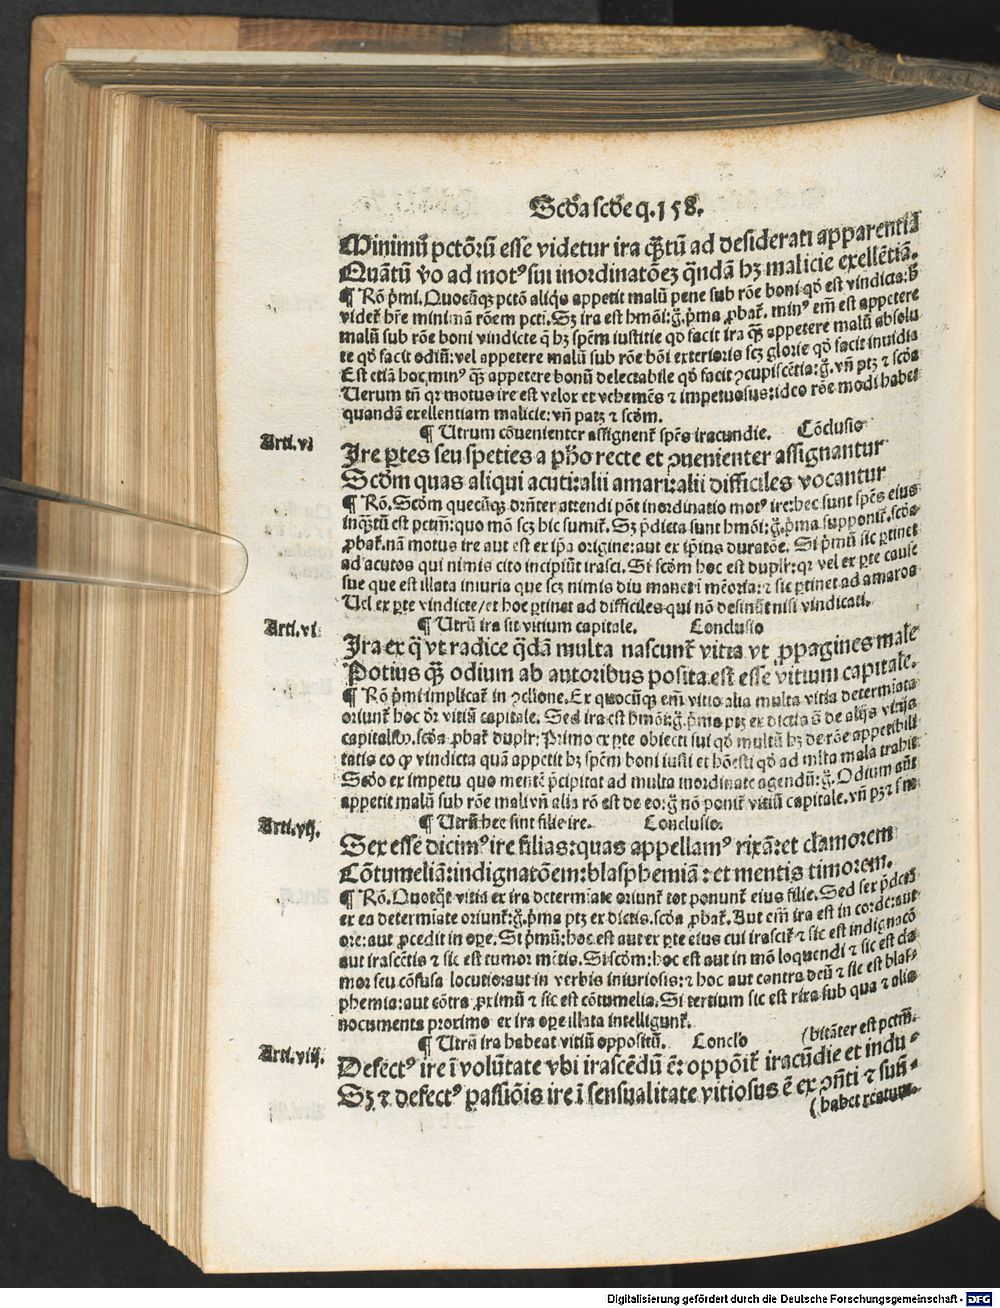 Scďa scďe q.158.
Minimū pctōrū esse videtur ira q̄tū ad desiderati apparentiā
Quātū ṽo ad motꝰ sui inordinatōeꝫ q̄ndā hꝫ malicie exellētiā.
¶ Rō pͥmi. Quocūqꝫ pctō aliqͥs appetit malū pene sub rōe boni qď est vindicta: ꝭ
videt̄ hr̄e minimā rōem pcti. Sꝫ ira est hmōi: ḡ. pͥma ꝓbat̄. minꝰ em̄ est appetere
malū sub rōe boni vindicte q̄ hꝫ spēm iustitie qď facit ira q̄ꝫ appetere malū absolu
te qď facit odiū: vel appetere malū sub rōe bōi exterioris scꝫ glorie qď facit inuidia
Est etiā hoc minꝰ q̄ꝫ appetere bonū delectabile qď facit ꝯcupiscētia: ḡ. vn̄ ptꝫ ⁊ scďa
Uerum tn̄ qꝛ motus ire est velox et vehemēs ⁊ impetuosus: ideo rōe modi habet
quandā exellentiam malicie: vn̄ patꝫ ⁊ scďm.
Arti. vi ¶ Utrum cōuenienter assignent̄ spēs iracundie. Cōclusio
Ire ꝑtes seu speties a pħo recte et ꝯuenienter assignantur
Scďm quas aliqui acuti: alii amari: alii difficiles vocantur
¶ Rō. Scďm quecūqꝫ dr̄nter attendi pōt inordinatio motꝰ ire: hec sunt spēs eius
inq̄tū est pctm̄: quo mō scꝫ hic sumit̄. Sꝫ pͥdicta sunt hmōi: ḡ. pͥma supponit̄. scďa
ꝓbat̄. nā motus ire aut est ex ip̄a origine: aut ex ip̄ius duratōe. Si pͥmū sic ꝑtinet
ad acutos qui nimis cito incipiūt irasci. Si scďm hoc est duplr̄: qꝛ vel ex ꝑte cause
sue que est illata iniuria que scꝫ nimis diu manet i mēoria: ⁊ sic ꝑtinet ad amaros
Uel ex ꝑte vindicte / et hoc ꝑtinet ad difficiles qui nō desinūt nisi vindicati.
Arti. vi ¶ Utrū ira sit vitium capitale. Conclusio
Ira ex qͥ vt radice qͥdā multa nascunt̄ vitia vt ꝓpagines male
Potius q̄ꝫ odium ab autoribus posita est esse vitium capitale.
¶ Rō pͥmi implicat̄ in ꝯclione. Ex quocūqꝫ em̄ vitio alia multa vitia determiata
oriunt̄ hoc dr̄ vitiū capitale. Sed ira est hmōi: ḡ. pͥma ptꝫ ex dictis s̄ de alijs vitijs
capitalibꝰ. scďa ꝓbat̄ duplr̄: Primo ex ꝑte obiecti sui qď multū hꝫ de rōe appetibili
tatis eo ꝙ vindicta quā appetit hꝫ spēm boni iusti et hōesti qď ad mlta mala trahit
Scďo ex impetu quo mentē pͥcipitat ad multa inordinate agendū: ḡ. Odium aūt
appetit malū sub rōe mali vn̄ alia rō est de eo: ḡ nō ponit̄ vitiū capitale. vn̄ pꝫ ⁊
Arti. vij. ¶ Utrū hec sint filie ire. Conclusio.
Sex esse dicimꝰ ire filias: quas appellamꝰ rixā: et clamorem
Cōtumeliā: indignatōem: blasphemiā: et mentis timorem.
¶ Rō. Quotqͦt vitia ex ira determīate oriunt̄ tot ponunt̄ eius filie. Sed sex pͥdcā
ex ea determiate oriunt̄: ḡ. pͥma ptꝫ ex dictis. scďa ꝓbat̄. Aut em̄ ira est in corde: aut
ore: aut ꝓcedit in oꝑe. Si pͥmū: hoc est aut ex ꝑte eius cui irascit̄ ⁊ sic est indignacō
aut irascētis ⁊ sic est tumor mētis. Si scďm: hoc est aut in mō loquendi ⁊ sic est cla
mor seu cōfusa locutio: aut in verbis iniuriosis: ⁊ hoc aut contra deū ⁊ sic est blas⸗
phemia: aut cōtra ꝓximū ⁊ sic est cōtumelia. Si tertium sic est rixa sub qua ⁊ alia
nocumenta proximo ex ira oꝑe illata intelligunt̄.
Arti. viij. ¶ Utrū ira habeat vitiū oppositū. Conclo (bitāter est pctm̄.
Defectꝰ ire ī volūtate vbi irascēdū ē: oppōit̄ iracūdie et indu⸗
Sꝫ ⁊ defectꝰ passiōis ire ī sensualitate vitiosus ē ex ꝯn̄ti ⁊ suū⸗
(habet reatum.
Digitalisierung gefördert durch die Deutsche Forschungsgemeinschaft - DFG